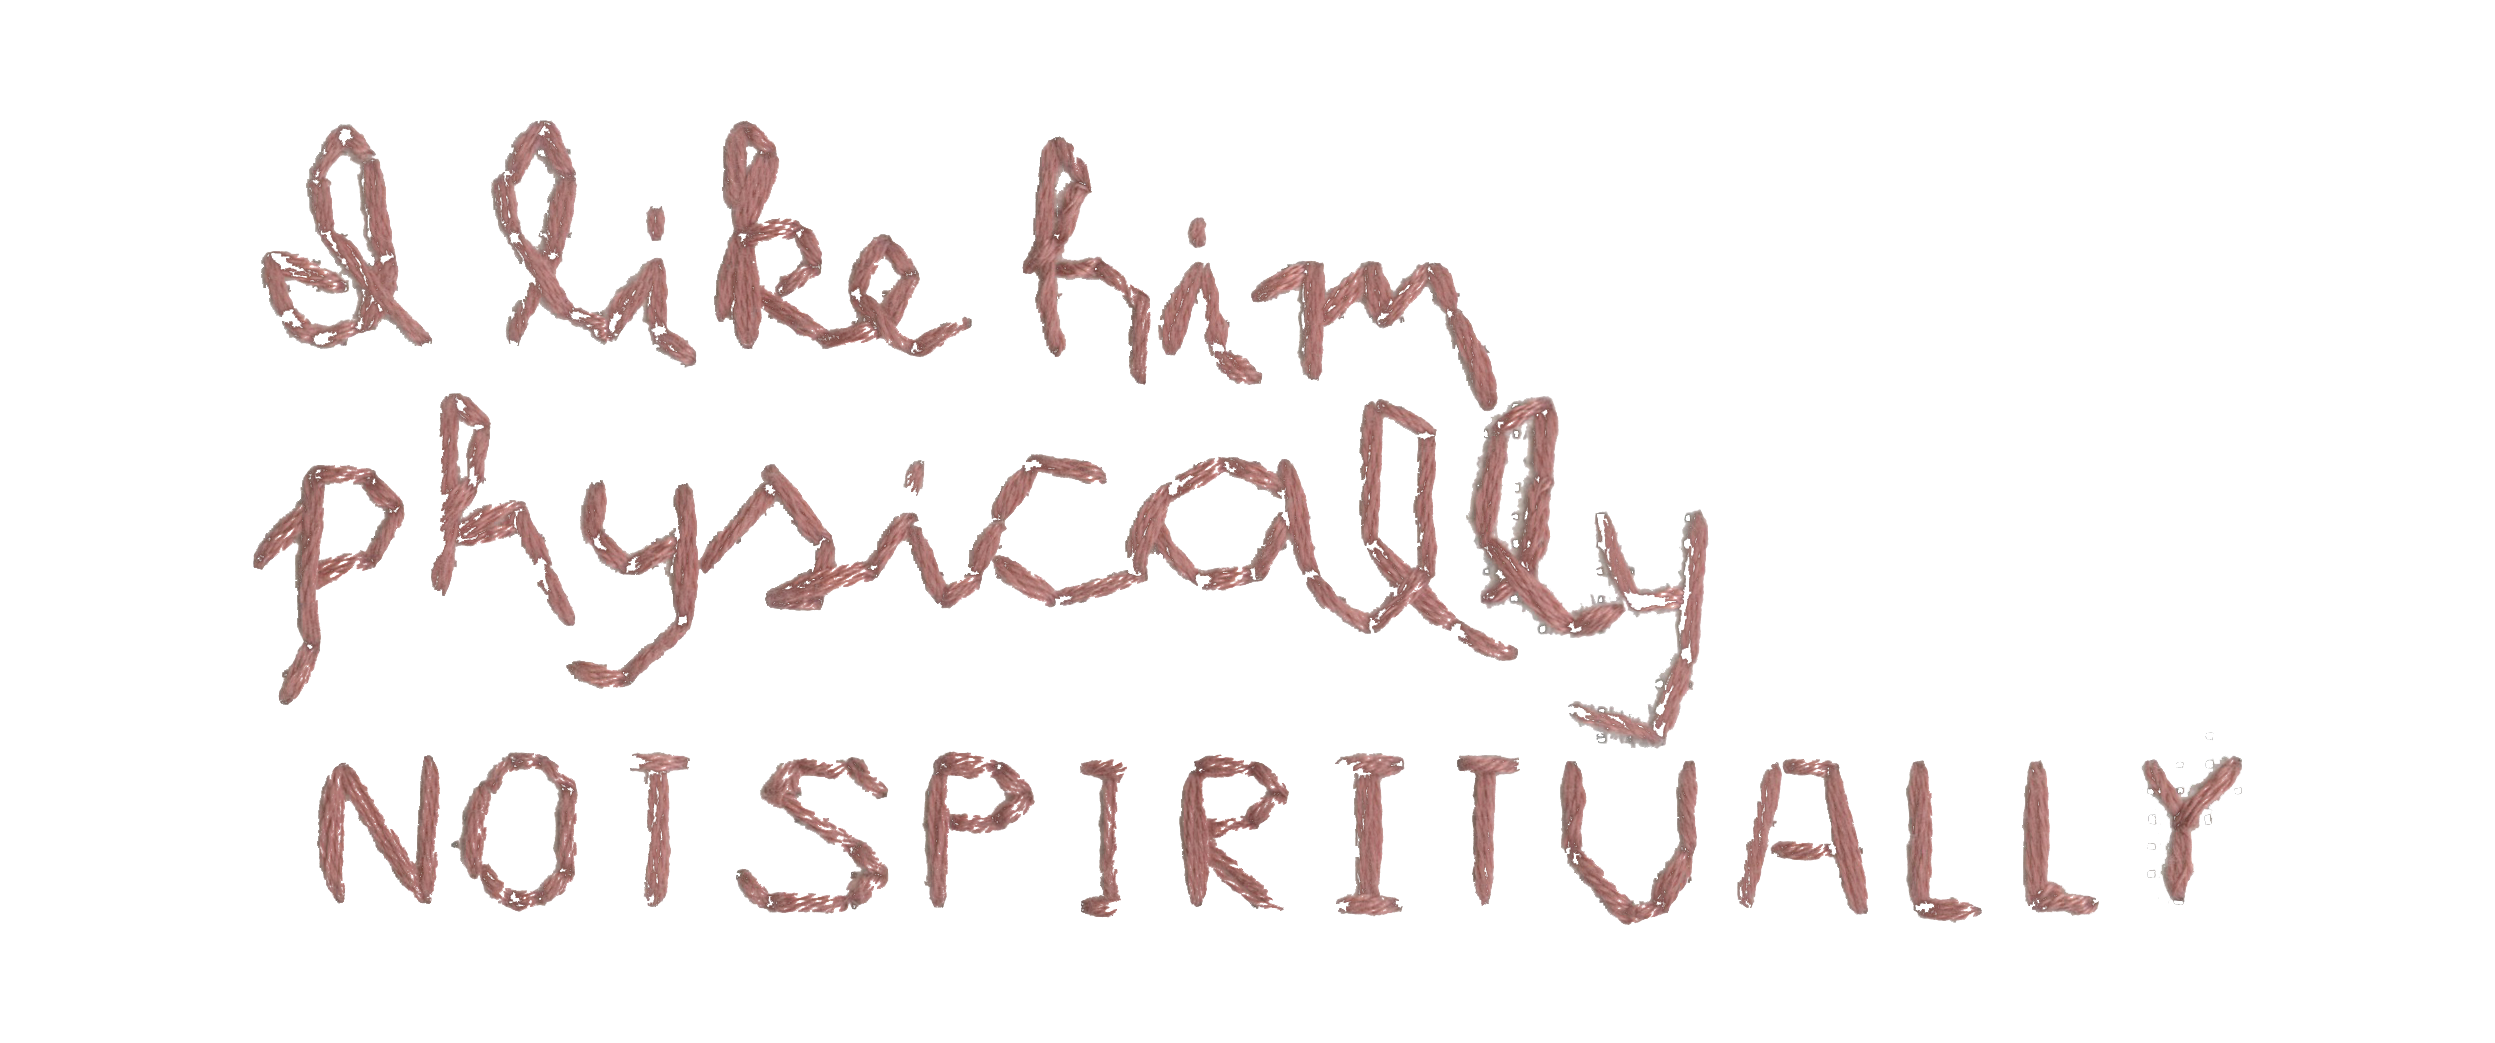 I like him
physically
NOT SPIRITUALLY